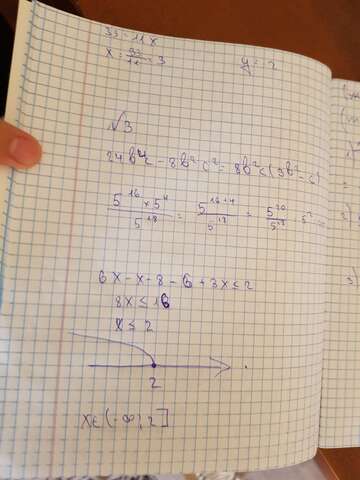 33 = 11x
x = 33/11 = 3 y = 2
√3
24b²c - 8b²c² = 8b²c(3b² - c)
5¹⁶ × 5⁴ / 5¹⁸ = 5¹⁶⁺⁴ / 5¹⁸ = 5²⁰ / 5¹⁸ = 5² =
6x - x - 8 - 6 + 3x ≤ 2
8x ≤ 16
x ≤ 2
2
x ∈ (-∞; 2]
2)
3)